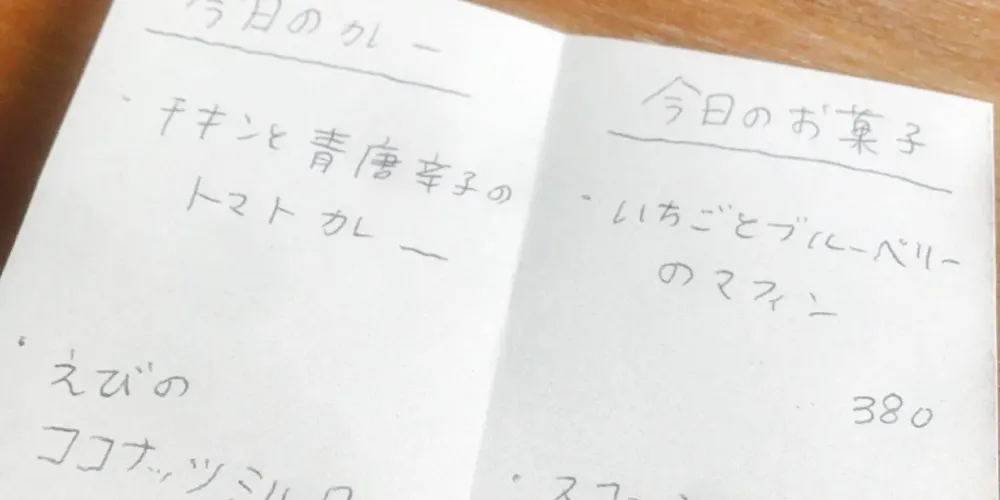 今日のカレー
・チキンと青唐辛子の
トマトカレー
・えびの
ココナッツミルク
今日のお菓子
・いちごとブルーベリー
のマフィン
380
・スコーン